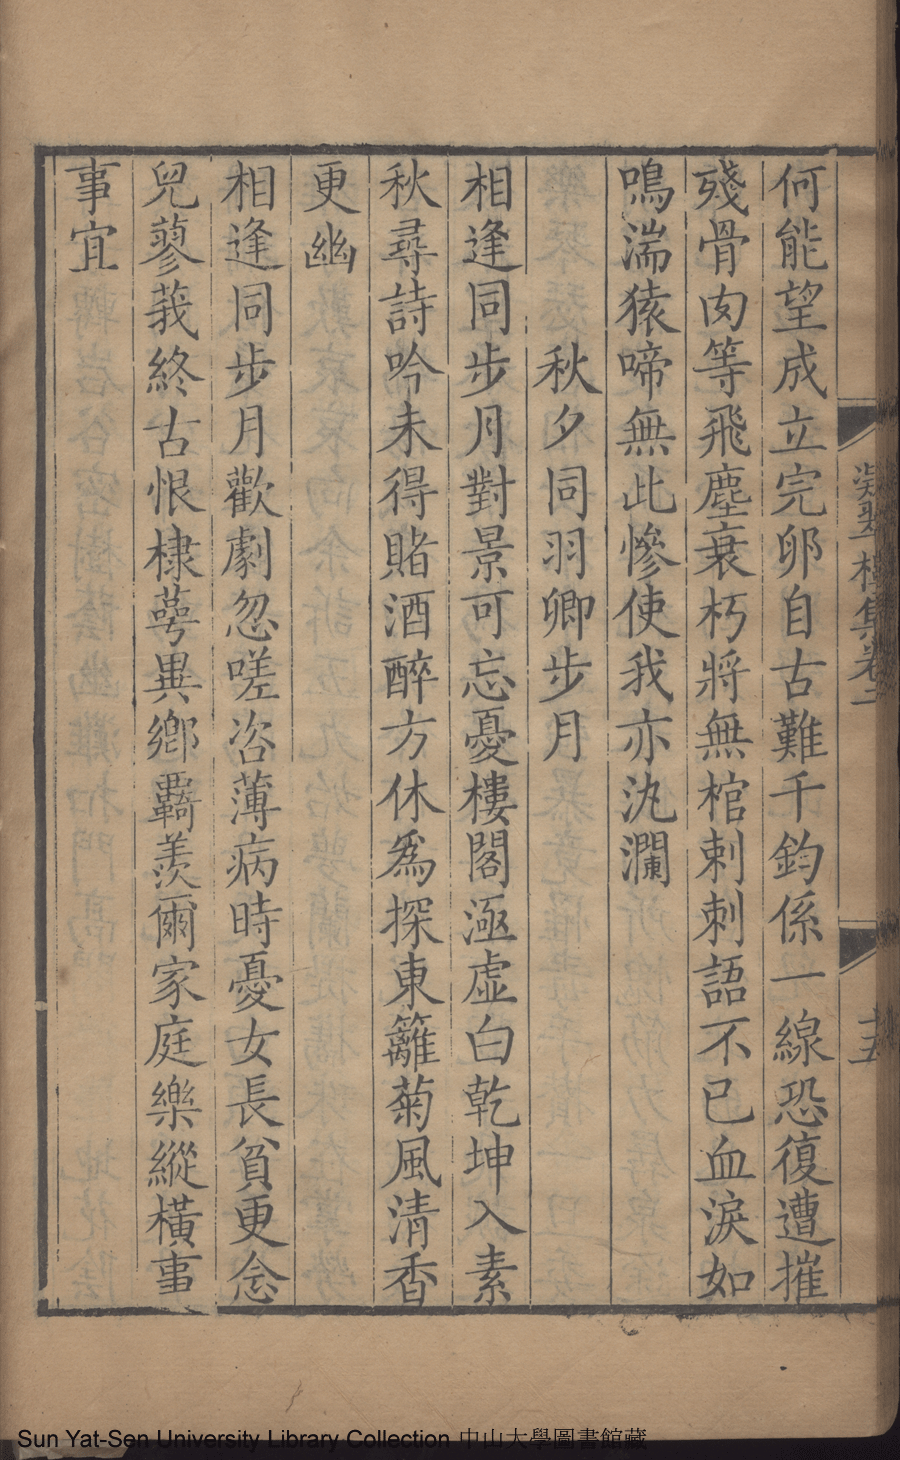 何能望成立完卵自古難千鈞係一線恐復遭摧
殘骨肉等飛塵衰朽將無棺剌剌語不已血淚如
鳴湍猿啼無此慘使我亦汍瀾
秋夕同羽卿步月
相逢同步月對景可忘憂樓閣涵虛白乾坤入素
秋尋詩吟未得賭酒醉方休為探東籬菊風清香
更幽
相逢同步月歡劇忽嗟咨薄病時憂女長貧更念
兒蓼莪終古恨棣萼異鄉羇羨爾家庭樂縱橫事
事宜
凝翠樓集卷二
十五
Sun Yat-Sen University Library Collection 中山大學圖書館藏